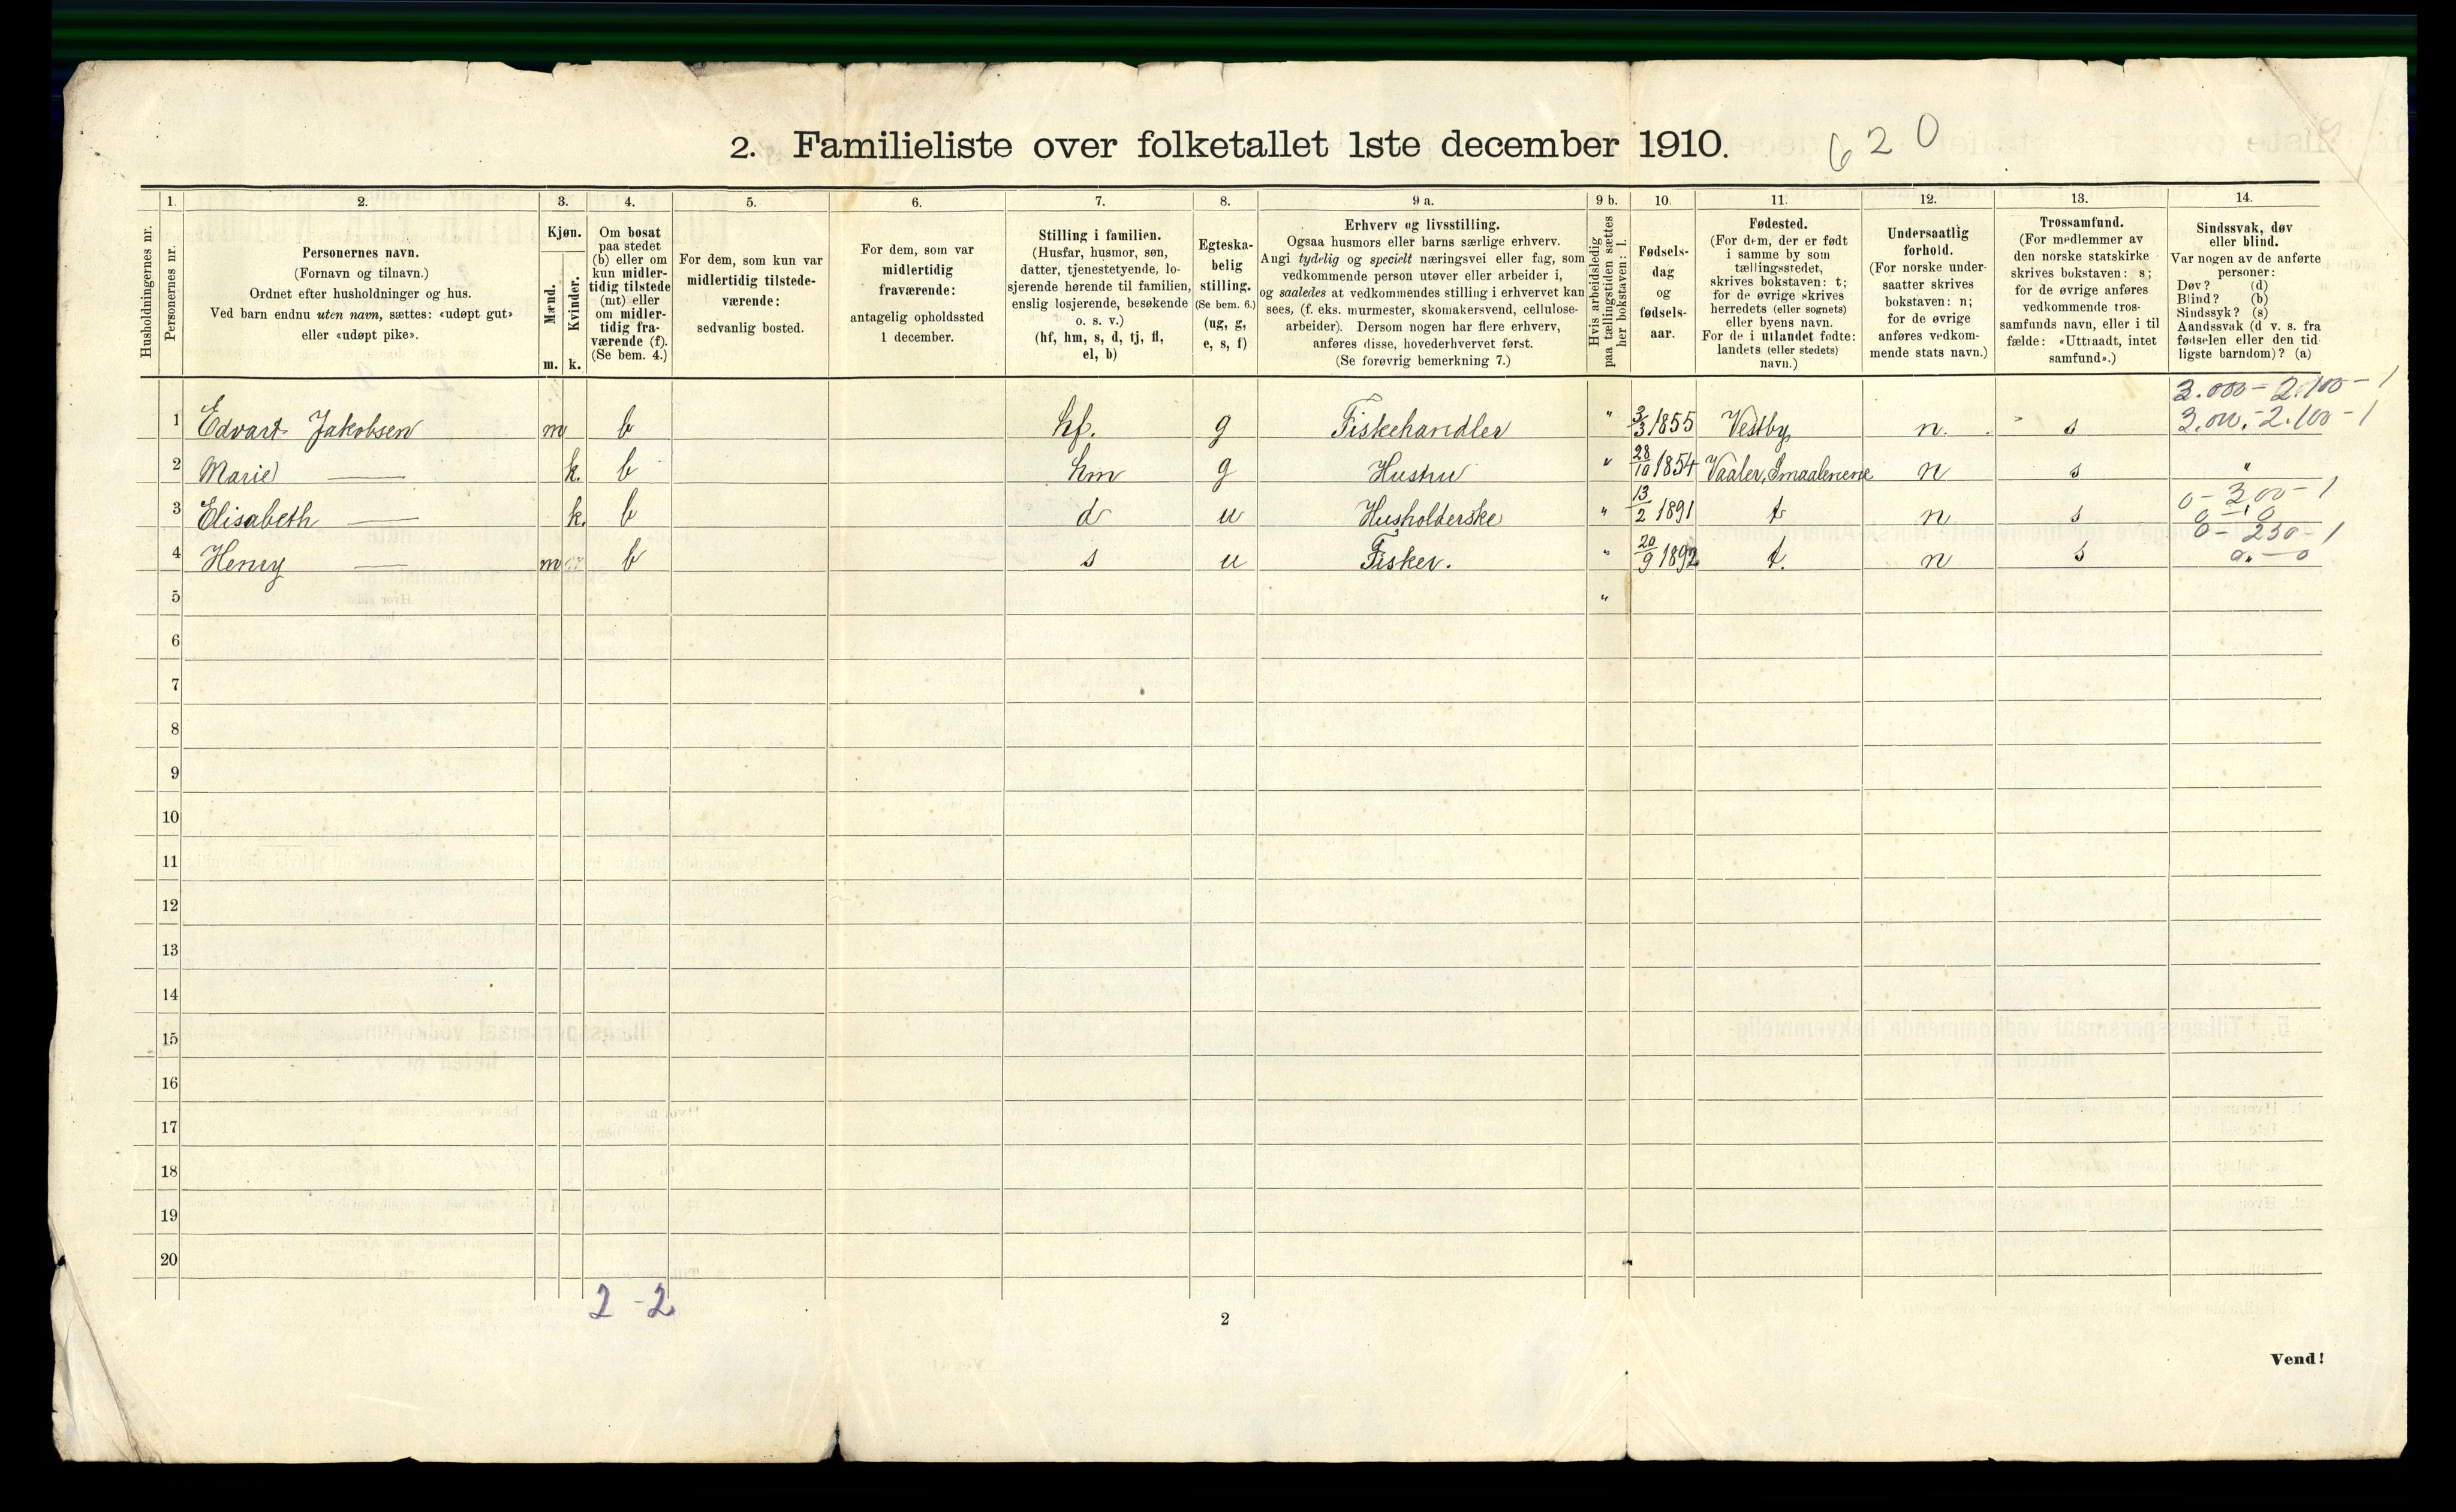 2. Familieliste over folketallet 1ste december 1910.
620
Husholdningernes nr.
1.
Personernes nr.
2.
Personernes navn.
(Fornavn og tilnavn.)
Ordnet efter husholdninger og hus.
Ved barn endnu uten navn, sættes: «udøpt gut»
eller «udøpt pike».
3.
Kjøn.
Mænd.
m.
Kvinder.
k.
4.
Om bosat
paa stedet
(b) eller om
kun midler-
tidig tilstede
(mt) eller
om midler-
tidig fra-
værende (f).
(Se bem. 4.)
5.
For dem, som kun var
midlertidig tilstede-
værende:
sedvanlig bosted.
6.
For dem, som var
midlertidig
fraværende:
antagelig opholdssted
1 december.
7.
Stilling i familien.
(Husfar, husmor, søn,
datter, tjenestetyende, lo-
sjerende hørende til familien,
enslig losjerende, besøkende
o. s. v.)
(hf, hm, s, d, tj, fl,
el, b)
8.
Egteska-
belig
stilling.
(Se bem. 6.)
(ug, g,
e, s, f)
9 a.
Erhverv og livsstilling.
Ogsaa husmors eller barns særlige erhverv.
Angi tydelig og specielt næringsvei eller fag, som
vedkommende person utøver eller arbeider i,
og saaledes at vedkommendes stilling i erhvervet kan
sees, (f. eks. murmester, skomakersvend, cellulose-
arbeider). Dersom nogen har flere erhverv,
anføres disse, hovederhvervet først.
(Se forøvrig bemerkning 7.)
9 b.
Hvis arbeidsledig
paa tællingstiden sættes
her bokstaven: l.
10.
Fødsels-
dag
og
fødsels-
aar.
11.
Fødested.
(For dem, der er født
i samme by som
tællingsstedet,
skrives bokstaven: t;
for de øvrige skrives
herredets (eller sognets)
eller byens navn.
For de i utlandet fødte:
landets (eller stedets)
navn.)
12.
Undersaatlig
forhold.
(For norske under-
saatter skrives
bokstaven: n;
for de øvrige
anføres vedkom-
mende stats navn.)
13.
Trossamfund.
(For medlemmer av
den norske statskirke
skrives bokstaven: s;
for de øvrige anføres
vedkommende tros-
samfunds navn, eller i til
fælde: «Uttraadt, intet
samfund».)
14.
Sindssvak, døv
eller blind.
Var nogen av de anførte
personer:
Døv? (d)
Blind? (b)
Sindssyk? (s)
Aandssvak (d v. s. fra
fødselen eller den tid-
ligste barndom)? (a)
3.000 - 2.100 - 1
1 Edvart Jakobsen m b hf. g Fiskehandler " 3/3 1855 Vestby n. s 3.000 - 2.100 - 1
2 Marie — k. b hm g Hustru " 28/10 1854 Vaaler, Smaalenene n s "
0 - 300 - 1
3 Elisabeth — k. b d u Husholderske " 13/2 1891 t n s 0 - 0
0 - 250 - 1
4 Henry — m b s u Fisker. " 20/9 1892 t. n s 0 - 0
5 "
6
7
8
9
10
11
12
13
14
15
16
17
18
19
20
2 - 2
2
Vend!